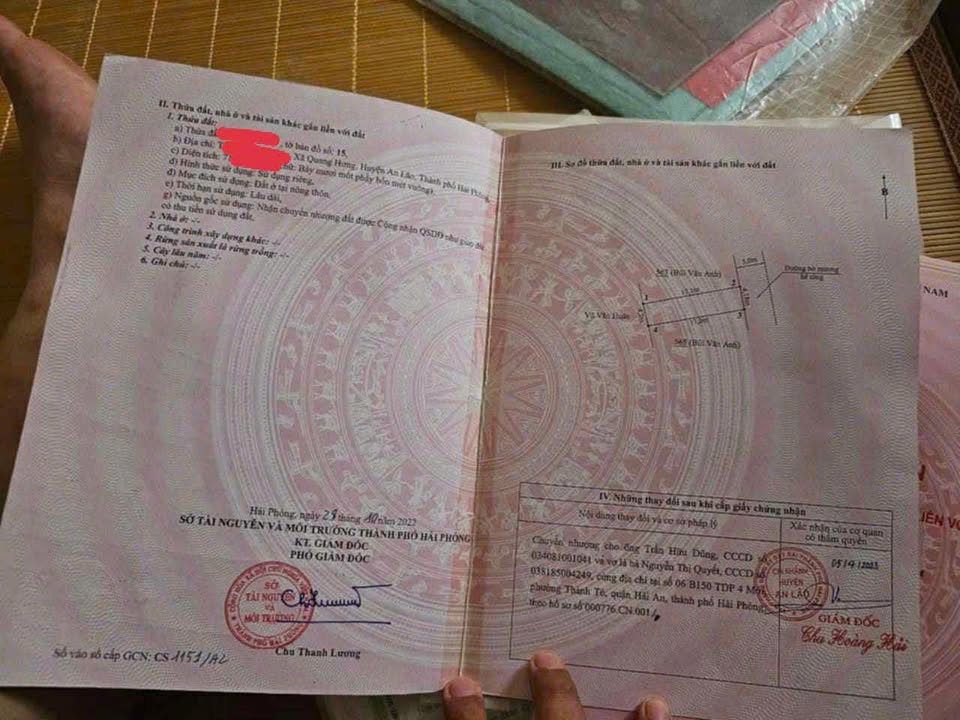 II. Thửa đất, nhà ở và tài sản khác gắn liền với đất
1. Thửa đất:
a) Thửa đấ , tờ bản đồ số: 15,
b) Địa chỉ: T , Xã Quang Hưng, Huyện An Lão, Thành phố Hải Phòng,
c) Diện tích: 7 hữ: Bảy mươi một phẩy bốn mét vuông),
d) Hình thức sử dụng: Sử dụng riêng,
đ) Mục đích sử dụng: Đất ở tại nông thôn,
e) Thời hạn sử dụng: Lâu dài,
g) Nguồn gốc sử dụng: Nhận chuyển nhượng đất được Công nhận QSDĐ như giao đất
có thu tiền sử dụng đất.
2. Nhà ở: -/-
3. Công trình xây dựng khác: -/-
4. Rừng sản xuất là rừng trồng: -/-
5. Cây lâu năm: -/-
6. Ghi chú: -/-
Hải Phòng, ngày 28 tháng 10 năm 2022
SỞ TÀI NGUYÊN VÀ MÔI TRƯỜNG THÀNH PHỐ HẢI PHÒNG
KT. GIÁM ĐỐC
PHÓ GIÁM ĐỐC
SỞ
TÀI NGUYÊN
VÀ
MÔI TRƯỜNG
THÀNH PHỐ HẢI PHÒNG
Chu Thanh Lương
Số vào sổ cấp GCN: CS 1151/AL
III. Sơ đồ thửa đất, nhà ở và tài sản khác gắn liền với đất
B
563 (Bùi Văn Anh)
5,0m
Đường bờ mương
bê tông
1
2
Vũ Văn Huấn
4
3
565 (Bùi Văn Anh)
IV. Những thay đổi sau khi cấp giấy chứng nhận
Nội dung thay đổi và cơ sở pháp lý
Xác nhận của cơ quan
có thẩm quyền
Chuyển nhượng cho ông Trần Hữu Dũng, CCCD số
034081001041 và vợ là bà Nguyễn Thị Quyết, CCCD số
038185004249, cùng địa chỉ tại số 06 B150 TDP 4
phường Thành Tô, quận Hải An, thành phố Hải Phòng,
theo hồ sơ số 000776.CN.001
CHI NHÁNH
HUYỆN
AN LÃO
GIÁM ĐỐC
Chu Hoàng Hải
NAM